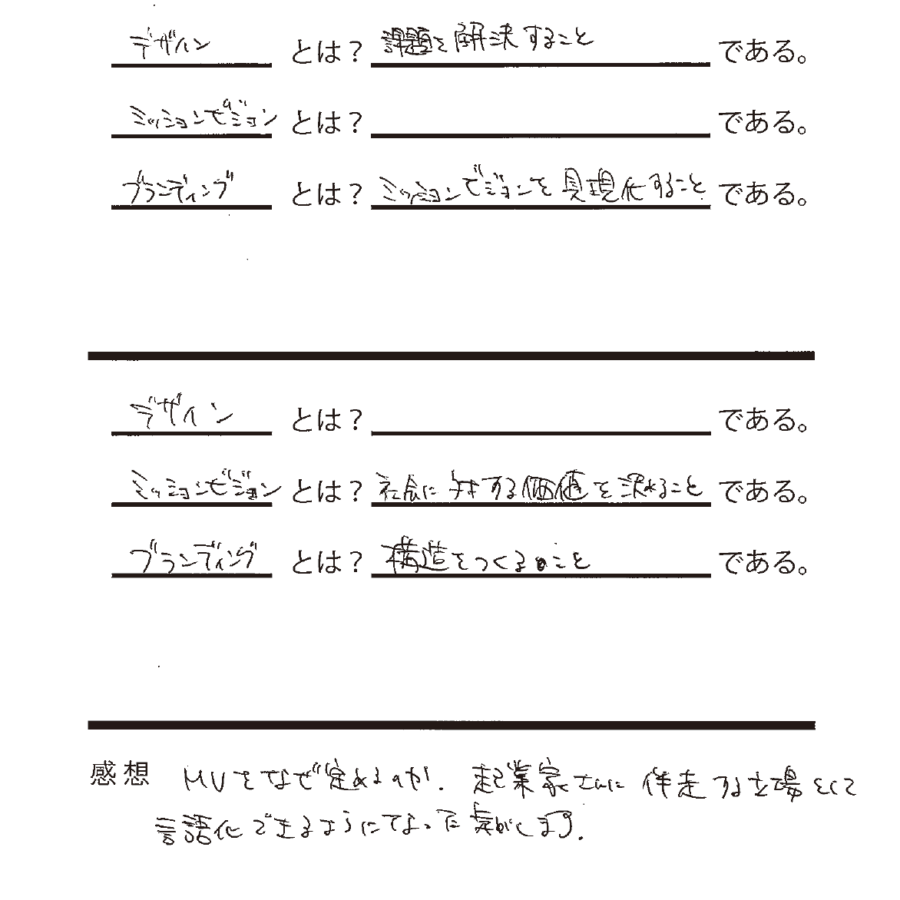 デザイン とは？ 課題を解決すること である。
ミッションビジョン とは？ である。
ブランディング とは？ ミッションビジョンを具現化すること である。
デザイン とは？ である。
ミッションビジョン とは？ 社会に対する価値を決めること である。
ブランディング とは？ 構造をつくること である。
感想 MVをなぜ定めるのか. 起業家さんに伴走する立場として
言語化できるようになった気がします.